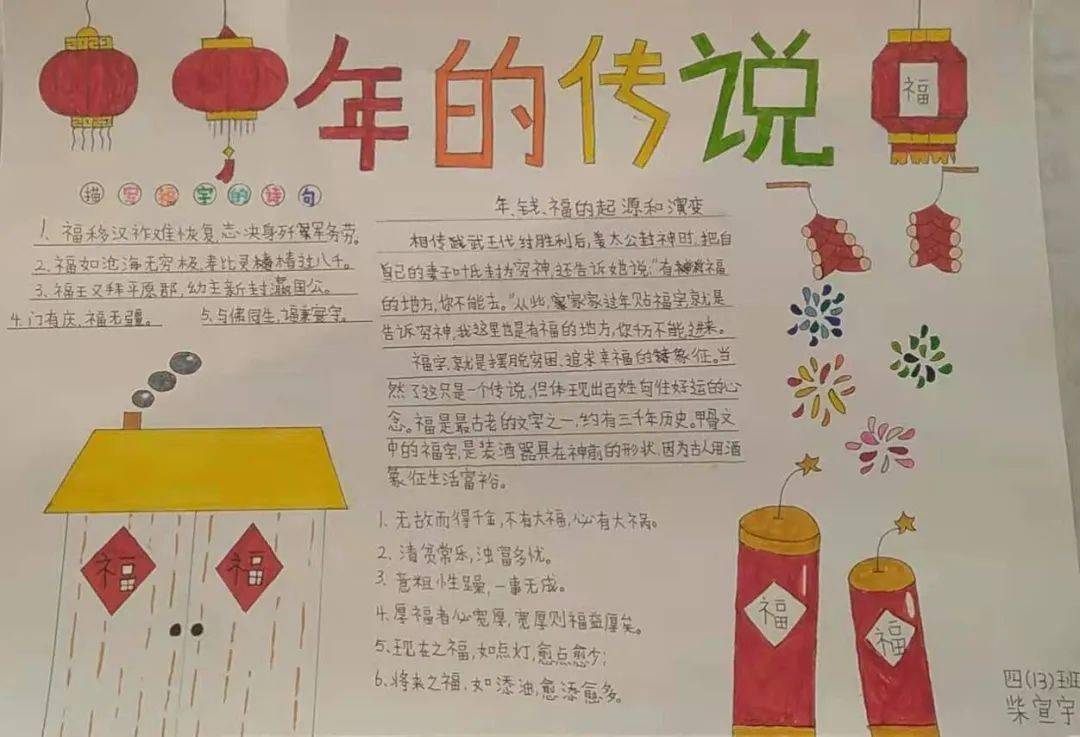 年的传说
福
描写福字的诗句
1. 福移汉祚难恢复,志决身歼军务劳。
2. 福如沧海无穷极,寿比灵椿过八千。
3. 福王又拜平原郡,幼主新封瀛国公。
4. 门有庆,福无疆。 5. 与佛同生,福兼寰宇。
年、钱、福的起源和演变
相传武王伐纣胜利后,姜太公封神时,把自
自己的妻子叶氏封为穷神,还告诉她说:“有福
的地方,你不能去。”从此,家家过年贴福字,就是
告诉穷神,我这里也是有福的地方,你千万不能进来。
福字,就是摆脱穷困、追求幸福的象征。当
然了这只是一个传说,但体现出百姓向往好运的心
念。福是最古老的文字之一,约有三千年历史。甲骨文
中的福字,是装酒器具在神前的形状,因为古人用酒
象征生活富裕。
1. 无故而得千金,不有大福,必有大祸。
2. 清贫常乐,浊富多忧。
3. 意粗性躁,一事无成。
4. 厚福者必宽厚,宽厚则福益厚矣。
5. 现在之福,如点灯,愈点愈少;
6. 将来之福,如添油,愈添愈多。
福
福
福
福
四(13)班
柴宣宇